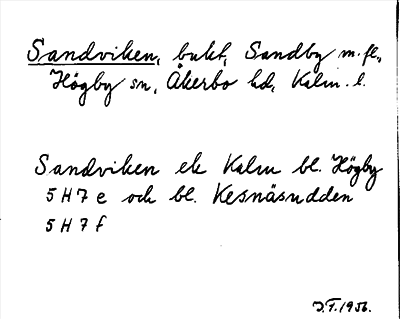 Sandviken, bukt, Sandby m.fl.,
Högby sn, Åkerbo hd, Kalm. l.
Sandviken ek Kalm bl. Högby
5H7e och bl. Kesnäsudden
5H7f
J.F. 1956.